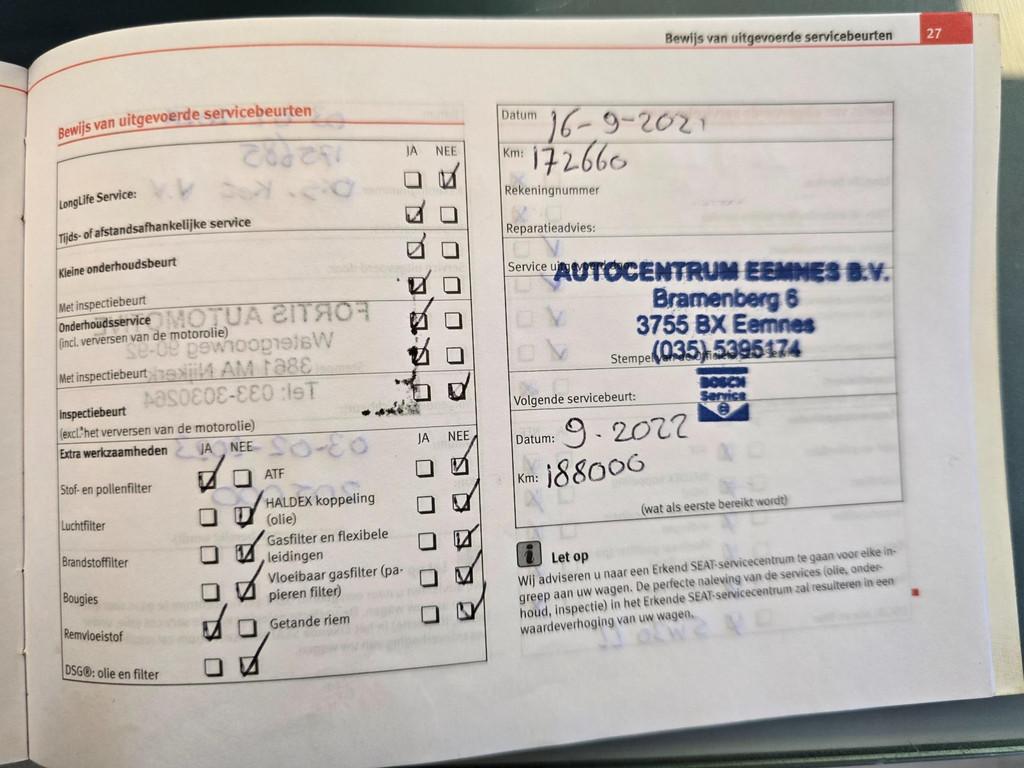 Bewijs van uitgevoerde servicebeurten 27
Bewijs van uitgevoerde servicebeurten
JA NEE
LongLife Service:
Tijds- of afstandsafhankelijke service
Kleine onderhoudsbeurt
Met inspectiebeurt
Onderhoudsservice
(incl. verversen van de motorolie)
Met inspectiebeurt
Inspectiebeurt
(excl. het verversen van de motorolie)
Extra werkzaamheden JA NEE JA NEE
Stof- en pollenfilter
Luchtfilter
Brandstoffilter
Bougies
Remvloeistof
DSG®: olie en filter
ATF
HALDEX koppeling
(olie)
Gasfilter en flexibele
leidingen
Vloeibaar gasfilter (pa-
pieren filter)
Getande riem
Datum 16-9-2021
Km: 172660
Rekeningnummer
Reparatieadvies:
Service
AUTOCENTRUM EEMNES B.V.
Bramenberg 6
3755 BX Eemnes
(035) 5395174
Stempel van de
BOSCH
Service
Volgende servicebeurt:
Datum: 9-2022
Km: 188000
(wat als eerste bereikt wordt)
i Let op
Wij adviseren u naar een Erkend SEAT-servicecentrum te gaan voor elke in-
greep aan uw wagen. De perfecte naleving van de services (olie, onder-
houd, inspectie) in het Erkende SEAT-servicecentrum zal resulteren in een
waardeverhoging van uw wagen.